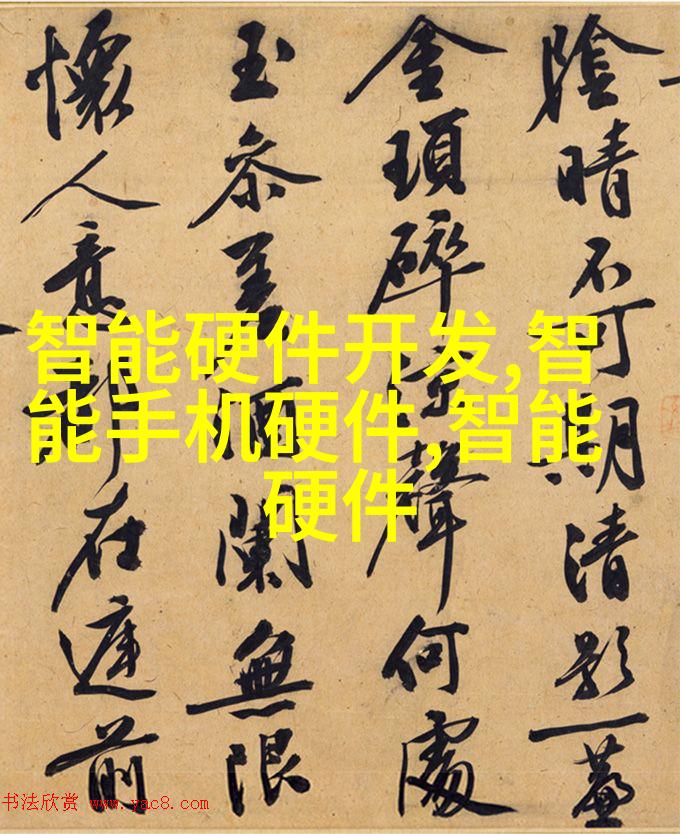 陰晴不可期清影一簾
金瑣碎涼聲何處
玉參差酒闌無限
懷人意都在前
智能硬件开发,智
能手机硬件,智能
硬件
书法欣赏 www.yac8.com